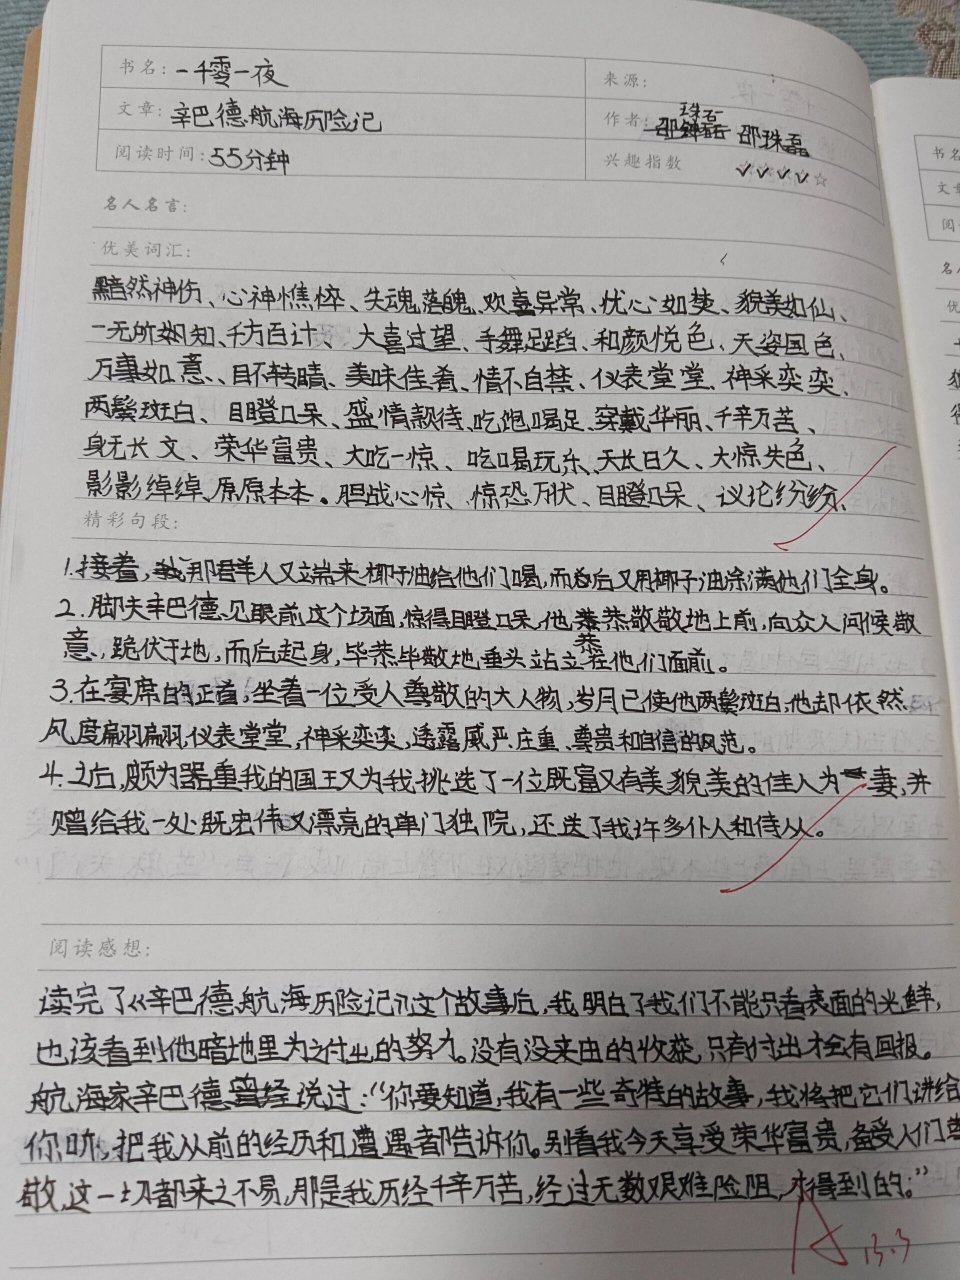 书名：一千零一夜
来源：
文章：辛巴德航海历险记
珠磊
作者：邵钟磊 邵珠磊
阅读时间：55分钟
兴趣指数 ✓✓✓✓☆
名人名言：
优美词汇：
黯然神伤、心神憔悴、失魂落魄、欢喜异常、忧心如焚、貌美如仙、
一无所知、千方百计、大喜过望、手舞足蹈、和颜悦色、天姿国色、
万事如意、目不转睛、美味佳肴、情不自禁、仪表堂堂、神采奕奕、
两鬓斑白、目瞪口呆、盛情款待、吃饱喝足、穿戴华丽、千辛万苦、
身无长文、荣华富贵、大吃一惊、吃喝玩乐、天长日久、大惊失色、
影影绰绰、原原本本。胆战心惊、惊恐万状、目瞪口呆、议论纷纷、
精彩句段：
1.接着，那群人又端来椰子油给他们喝，而后又用椰子油涂满他们全身。
2.脚夫辛巴德见眼前这个场面，惊得目瞪口呆，他恭恭敬敬地上前，向众人问候敬
意，跪伏于地，而后起身，毕恭毕敬地垂头站立在他们面前。
3.在宴席的正首，坐着一位受人尊敬的大人物，岁月已使他两鬓斑白，他却依然
风度翩翩，仪表堂堂，神采奕奕，透露威严、庄重、尊贵和自信的风范。
4.之后，颇为器重我的国王又为我挑选了一位既富又有美貌美的佳人为妻，并
赠给我一处既宏伟又漂亮的单门独院，还送了我许多仆人和侍从。
阅读感想：
读完了《辛巴德航海历险记》这个故事后，我明白了我们不能只看表面的光鲜，
也该看到他暗地里为之付出的努力。没有没来由的收获，只有付出才会有回报。
航海家辛巴德曾经说过：“你要知道，我有一些奇特的故事，我将把它们讲给
你听，把我从前的经历和遭遇都告诉你。别看我今天享受荣华富贵，备受人们尊
敬，这一切都来之不易，那是我历经千辛万苦，经过无数艰难险阻，才得到的。”
A 13.3
书名
文章
阅
名人
优